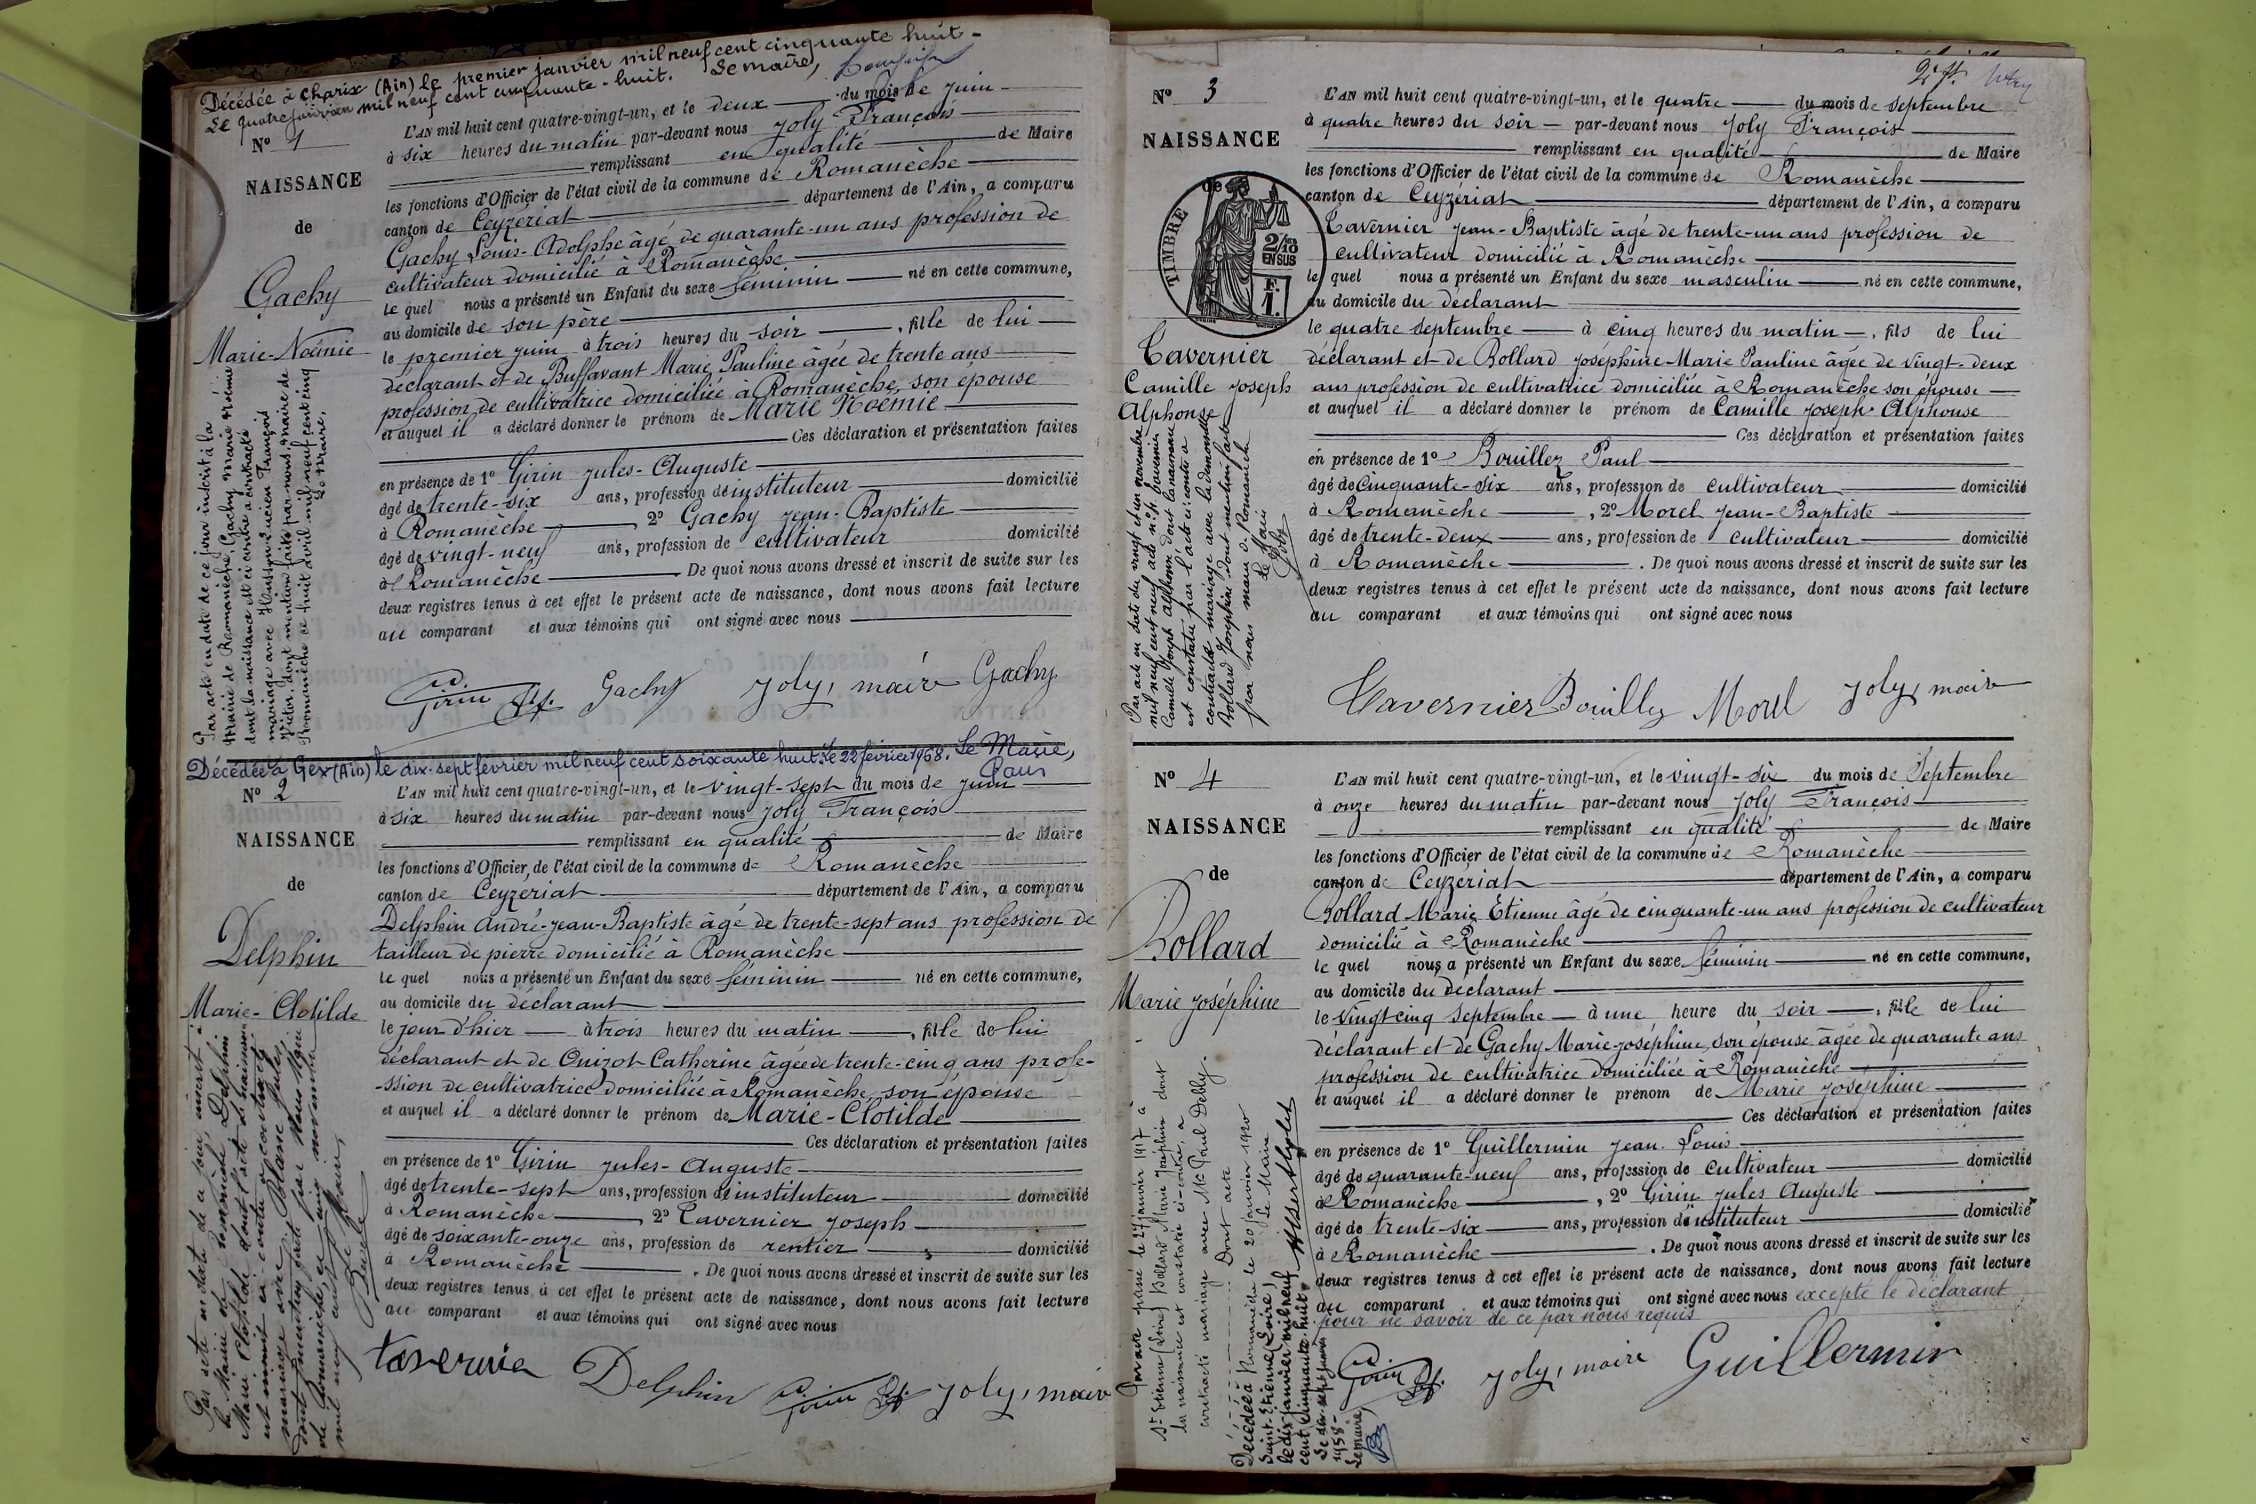 Décédée à Charix (Ain) le premier janvier mil neuf cent cinquante huit -
Le quatre janvier mil neuf cent cinquante-huit. Le maire,
N° 1
NAISSANCE
de
Gachy
Marie-Noémie
L'AN mil huit cent quatre-vingt-un, et le deux du mois de juin
à six heures du matin par-devant nous Joly François
remplissant en qualité de Maire
les fonctions d'Officier de l'état civil de la commune de Romanèche
canton de Ceyzériat département de l'Ain, a comparu
Gachy Louis-Adolphe âgé de quarante-un ans profession de
cultivateur domicilié à Romanèche
le quel nous a présenté un Enfant du sexe féminin né en cette commune,
au domicile de son père
le premier juin à trois heures du soir, fille de lui
déclarant et de Buffavant Marie Pauline âgée de trente ans
profession de cultivatrice domiciliée à Romanèche, son épouse
et auquel il a déclaré donner le prénom de Marie Noémie
Ces déclaration et présentation faites
en présence de 1° Girin Jules-Auguste
âgé de trente-six ans, profession de instituteur domicilié
à Romanèche, 2° Gachy Jean-Baptiste
âgé de vingt-neuf ans, profession de cultivateur domicilié
à Romanèche De quoi nous avons dressé et inscrit de suite sur les
deux registres tenus à cet effet le présent acte de naissance, dont nous avons fait lecture
au comparant et aux témoins qui ont signé avec nous
Girin Gachy Joly, maire Gachy
Par acte en date de ce jour inscrit à la
Mairie de Romanèche, Gachy Marie Noémie
dont la naissance est ci contre a contracté
mariage avec Lucien François
Victor, dont mention faite par nous, maire de
Romanèche ce huit avril mil neuf cent cinq
Le Maire,
Décédée à Gex (Ain) le dix-sept février mil neuf cent soixante huit. Le 22 février 1968. Le Maire,
N° 2
NAISSANCE
de
Delphin
Marie-Clotilde
L'AN mil huit cent quatre-vingt-un, et le vingt-sept du mois de juin
à six heures du matin par-devant nous Joly François
remplissant en qualité de Maire
les fonctions d'Officier de l'état civil de la commune de Romanèche
canton de Ceyzériat département de l'Ain, a comparu
Delphin André-Jean-Baptiste âgé de trente-sept ans profession de
tailleur de pierre domicilié à Romanèche
le quel nous a présenté un Enfant du sexe féminin né en cette commune,
au domicile du déclarant
le jour d'hier à trois heures du matin, fille de lui
déclarant et de Onizot Catherine âgée de trente-cinq ans profe-
-ssion de cultivatrice domiciliée à Romanèche, son épouse
et auquel il a déclaré donner le prénom de Marie-Clotilde
Ces déclaration et présentation faites
en présence de 1° Girin Jules-Auguste
âgé de trente-sept ans, profession de instituteur domicilié
à Romanèche, 2° Tavernier Joseph
âgé de soixante-onze ans, profession de rentier domicilié
à Romanèche. De quoi nous avons dressé et inscrit de suite sur les
deux registres tenus à cet effet le présent acte de naissance, dont nous avons fait lecture
au comparant et aux témoins qui ont signé avec nous
Delphin Girin Joly, maire
Par acte en date de ce jour, inscrit à
la Mairie de la nommée Delphin
Marie Clotilde dont l'acte de naissance
est inscrit ci contre a contracté
mariage avec Blanc Jules,
dont mention faite par Nous Maire
de Romanèche, ce cinq novembre
mil neuf cent
Le Maire,
2e f.
N° 3
NAISSANCE
de
TIMBRE
2/10
EN SUS
F.
1.
Tavernier
Camille Joseph
Alphonse
L'AN mil huit cent quatre-vingt-un, et le quatre du mois de septembre
à quatre heures du soir par-devant nous Joly François
remplissant en qualité de Maire
les fonctions d'Officier de l'état civil de la commune de Romanèche
canton de Ceyzériat département de l'Ain, a comparu
Tavernier Jean-Baptiste âgé de trente-un ans profession de
cultivateur domicilié à Romanèche
le quel nous a présenté un Enfant du sexe masculin né en cette commune,
au domicile du déclarant
le quatre septembre à cinq heures du matin, fils de lui
déclarant et de Bollard Joséphine-Marie Pauline âgée de vingt-deux
ans profession de cultivatrice domiciliée à Romanèche son épouse
et auquel il a déclaré donner le prénom de Camille Joseph Alphonse
Ces déclaration et présentation faites
en présence de 1° Bouillez Paul
âgé de cinquante-six ans, profession de cultivateur domicilié
à Romanèche, 2° Morel Jean-Baptiste
âgé de trente-deux ans, profession de cultivateur domicilié
à Romanèche. De quoi nous avons dressé et inscrit de suite sur les
deux registres tenus à cet effet le présent acte de naissance, dont nous avons fait lecture
au comparant et aux témoins qui ont signé avec nous
Tavernier Bouillez Morel Joly, maire
Par acte en date du vingt et un novembre
mil neuf cent neuf, acte n° 4, Tavernier
Camille Joseph Alphonse dont la naissance
est constatée par l'acte ci contre a
contracté mariage avec la demoiselle
Bollard Joséphine dont mention faite
par nous maire d. Romanèche
Le Maire
Joly
N° 4
NAISSANCE
de
Bollard
Marie Joséphine
L'AN mil huit cent quatre-vingt-un, et le vingt-six du mois de Septembre
à onze heures du matin par-devant nous Joly François
remplissant en qualité de Maire
les fonctions d'Officier de l'état civil de la commune de Romanèche
canton de Ceyzériat département de l'Ain, a comparu
Bollard Marie Etienne âgé de cinquante-un ans profession de cultivateur
domicilié à Romanèche
le quel nous a présenté un Enfant du sexe féminin né en cette commune,
au domicile du déclarant
le vingt cinq septembre à une heure du soir, fille de lui
déclarant et de Gachy Marie-Joséphine, son épouse âgée de quarante ans
profession de cultivatrice domiciliée à Romanèche
et auquel il a déclaré donner le prénom de Marie Joséphine
Ces déclaration et présentation faites
en présence de 1° Guillermin Jean-Louis
âgé de quarante-neuf ans, profession de cultivateur domicilié
à Romanèche, 2° Girin Jules Auguste
âgé de trente-six ans, profession d'instituteur domicilié
à Romanèche. De quoi nous avons dressé et inscrit de suite sur les
deux registres tenus à cet effet le présent acte de naissance, dont nous avons fait lecture
au comparant et aux témoins qui ont signé avec nous excepté le déclarant
pour ne savoir de ce par nous requis
Girin Joly, maire Guillermin
Par acte passé le 27 janvier 1917 à
St Etienne (Loire) Bollard Marie Joséphine dont
la naissance est constatée ci-contre, a
contracté mariage avec Mr Paul Debly.
Dont acte
Romanèche le 20 janvier 1920
Le Maire
Décédée à
Saint-Etienne (Loire)
le dix janvier mil neuf
cent cinquante-huit.
Le dix-sept janvier
1958 -
Le maire,